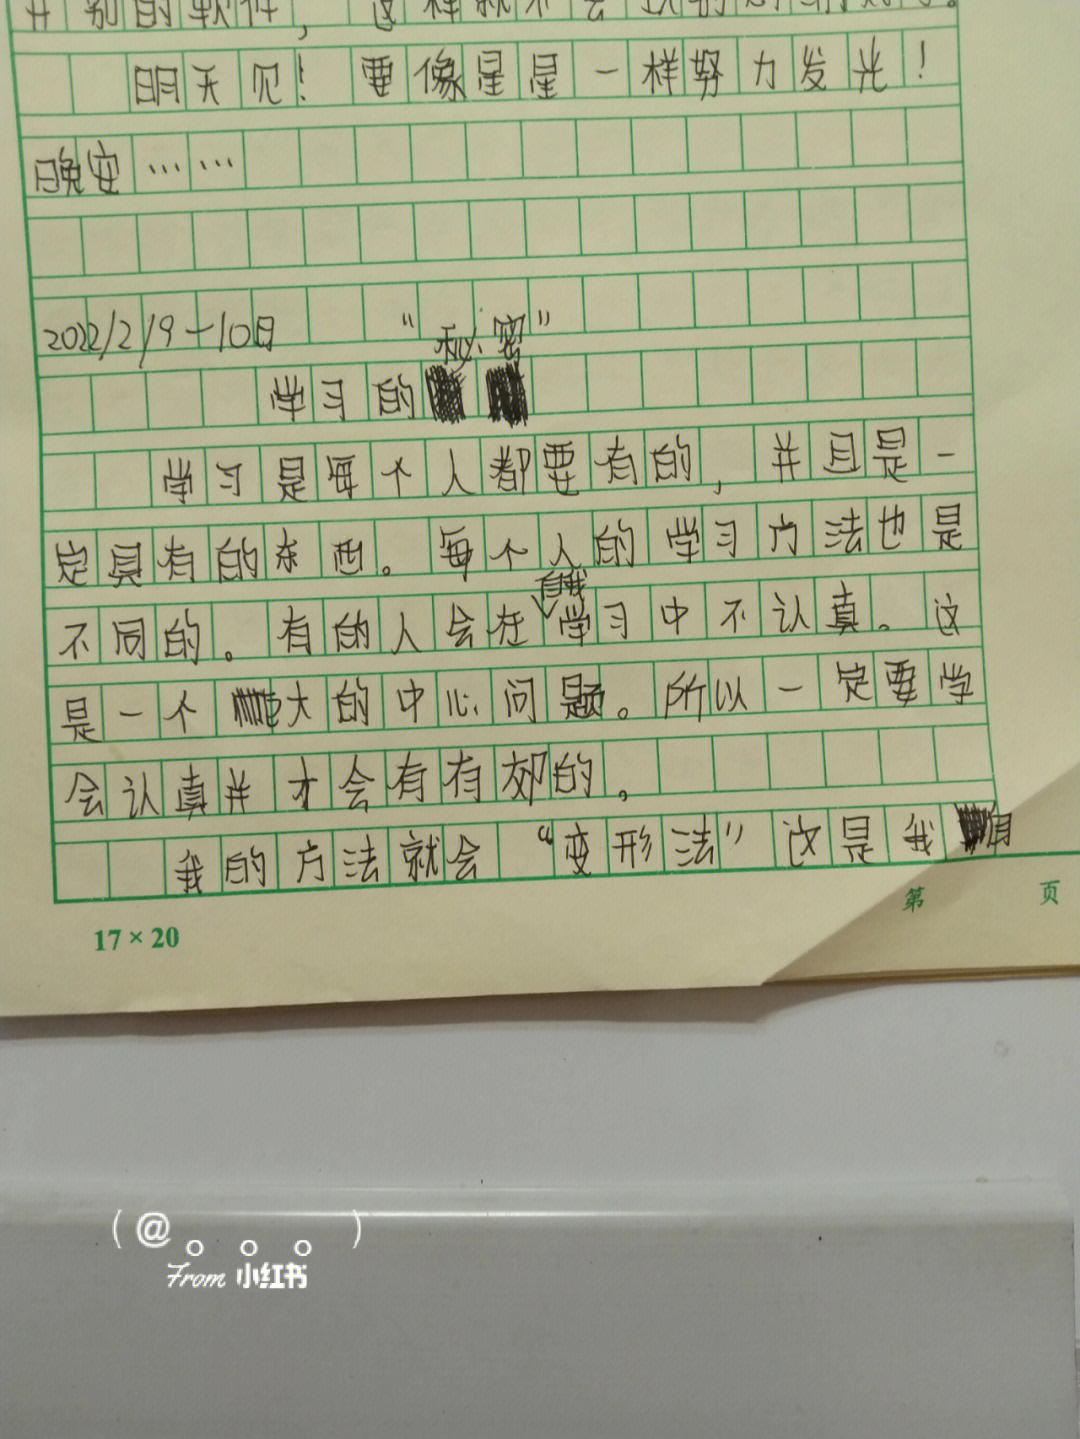 别的软件，这样就不会
明天见！要像星星一样努力发光！
晚安……
2022/2/9-10日
学习的“秘密”
学习是每个人都要有的，并且是一
定具有的东西。每个人的学习方法也是
不同的。有的人会在自我学习中不认真。这
是一个大的中心问题。所以一定要学
会认真并才会有有效的。
我的方法就会“变形法”这是我
17×20
第 页
(@。。。)
From 小红书